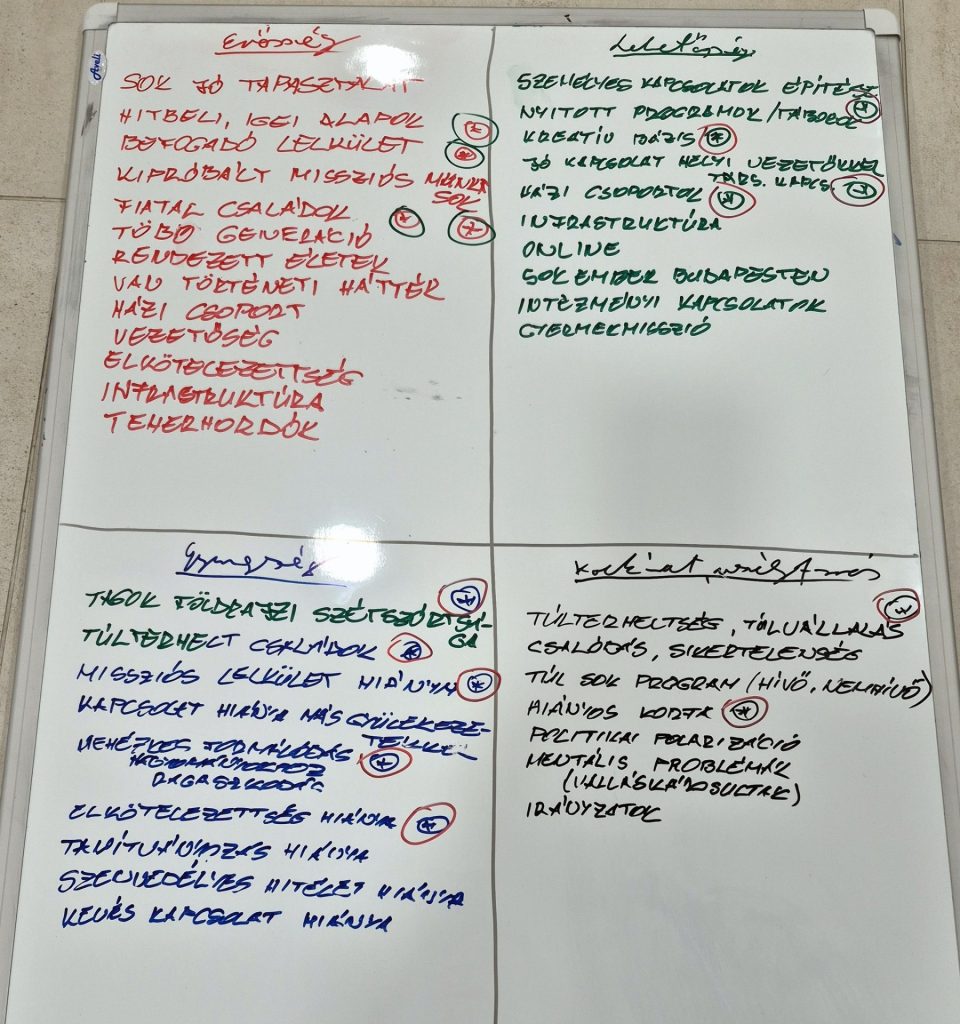 Erősség
SOK JÓ TAPASZTALAT
HITBELI, IGEI ALAPOK
BEFOGADÓ LELKÜLET
KIPRÓBÁLT MISSZIÓS MUNKA
SOK
FIATAL CSALÁDOK
TÖBB GENERÁCIÓ
RENDEZETT ÉLETEK
VAN TÖRTÉNETI HÁTTÉR
HÁZI CSOPORT
VEZETŐSÉG
ELKÖTELEZETTSÉG
INFRASTRUKTÚRA
TEHERHORDÓK
Lehetőség
SZEMÉLYES KAPCSOLATOK ÉPÍTÉSE
NYITOTT PROGRAMOK/
KREATÍV BÁZIS
JÓ KAPCSOLAT HELYI VEZETŐKKEL
TÁRS. KAPCS.
HÁZI CSOPORTOK
INFRASTRUKTÚRA
ONLINE
SOK EMBER BUDAPESTEN
INTÉZMÉNYI KAPCSOLATOK
GYERMEKMISSZIÓ
Gyengeség
TAGOK FÖLDRAJZI SZÉTSZÓRTSÁ-
GA
TÚLTERHELT CSALÁDOK
MISSZIÓS LELKÜLET HIÁNYA
KAPCSOLAT HIÁNYA MÁS GYÜLEKEZE-
TEKKEL
NEHÉZKES FORMÁLÓDÁS
HAGYOMÁNYOKHOZ
RAGASZKODÁS
ELKÖTELEZETTSÉG HIÁNYA
TANÍTVÁNYOZÁS HIÁNYA
SZENVEDÉLYES HITÉLET HIÁNYA
KEVÉS KAPCSOLAT HIÁNYA
Kockázat,
TÚLTERHELTSÉG, TÚLVÁLLALÁS
CSALÓDÁS, SIKERTELENSÉG
TÚL SOK PROGRAM (HÍVŐ, NEMHÍVŐ)
HIÁNYOS KORFA
POLITIKAI POLARIZÁCIÓ
MENTÁLIS PROBLÉMÁK
(VALLÁSKÁROSULTAK)
IRÁNYZATOK